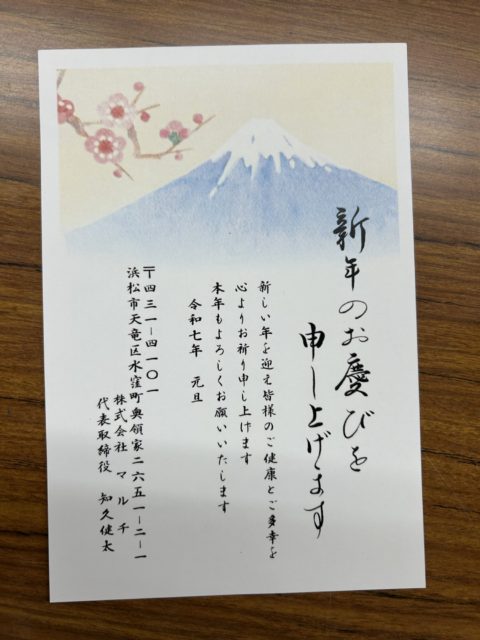 新年のお慶びを
申し上げます
新しい年を迎え皆様のご健康とご多幸を
心よりお祈り申し上げます
本年もよろしくお願いいたします
令和七年 元旦
〒四三一−四一〇一
浜松市天竜区水窪町奥領家二六五一−二−一
株式会社 マルチ
代表取締役 知久健太